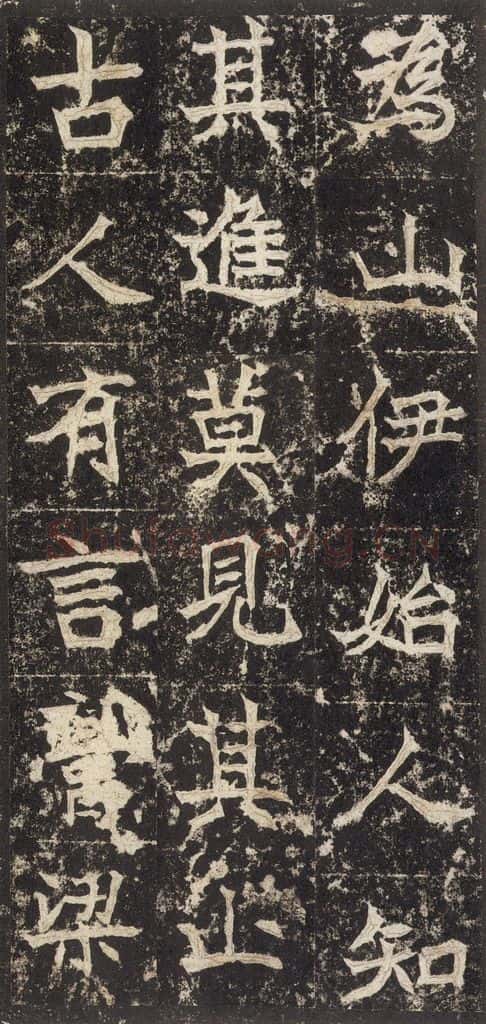 為山伊始人知
其進莫見其止
古人有言膏粱
Shufawang.CN